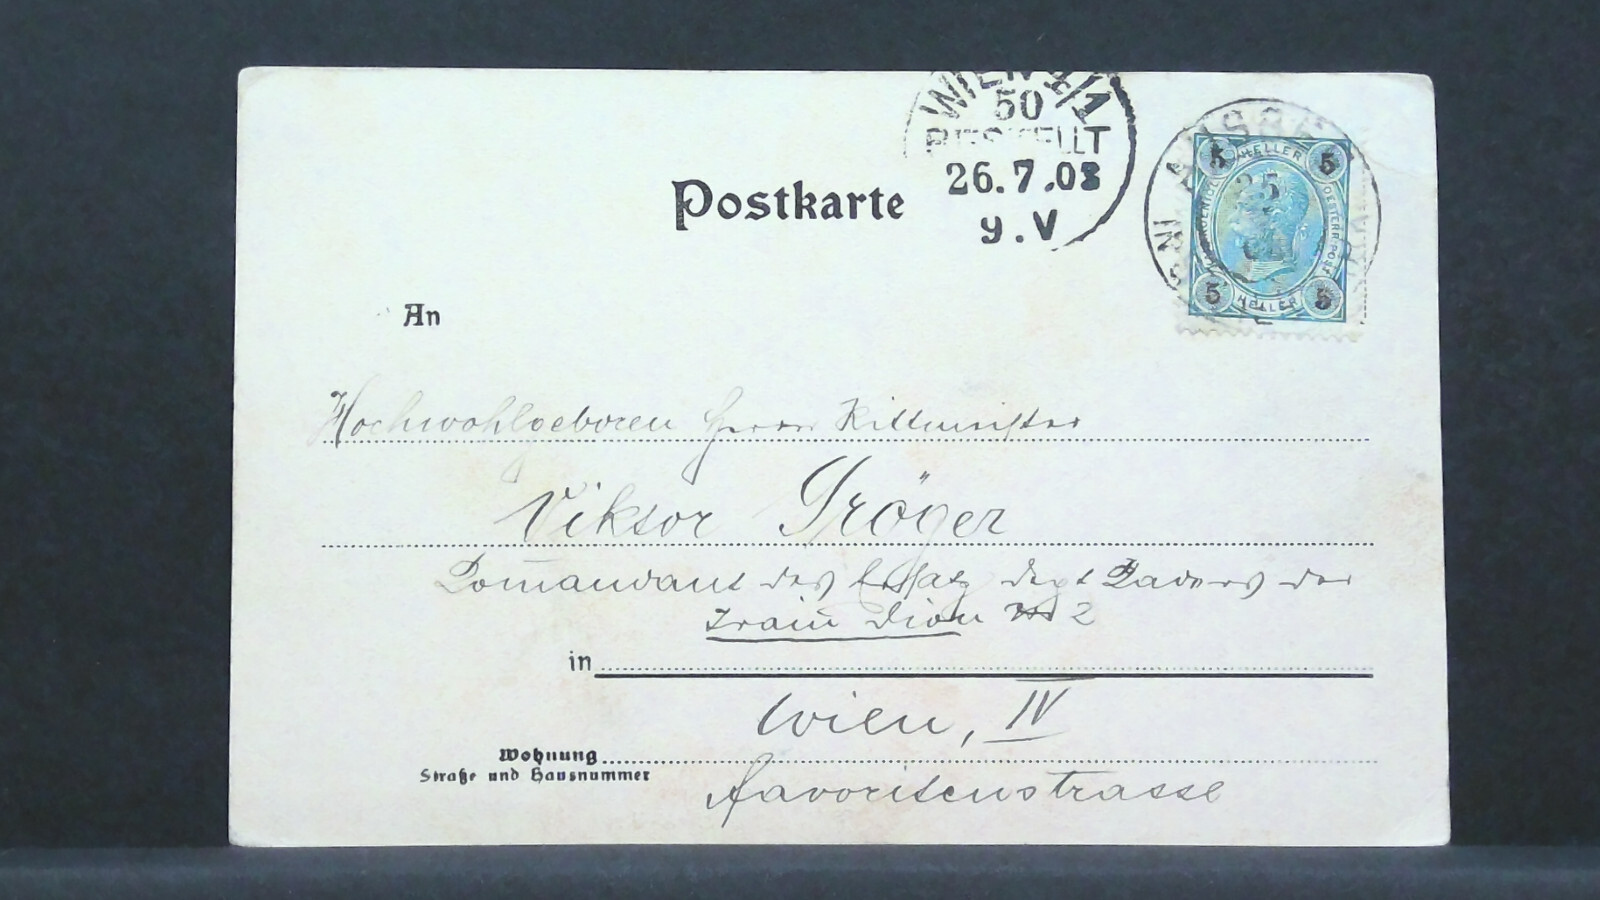 WIEN 4/1
50
BESTELLT
26.7.03
9.V
Postkarte
5 HELLER 5
25
5 HELLER 5
An
Hochwohlgeboren Herrn Rittmeister
Viktor Gröger
Commandant des Ersatz Depot Cadres der
Train Dion 2
in
Wien, IV
Wohnung
Straße und Hausnummer
Favoritenstrasse